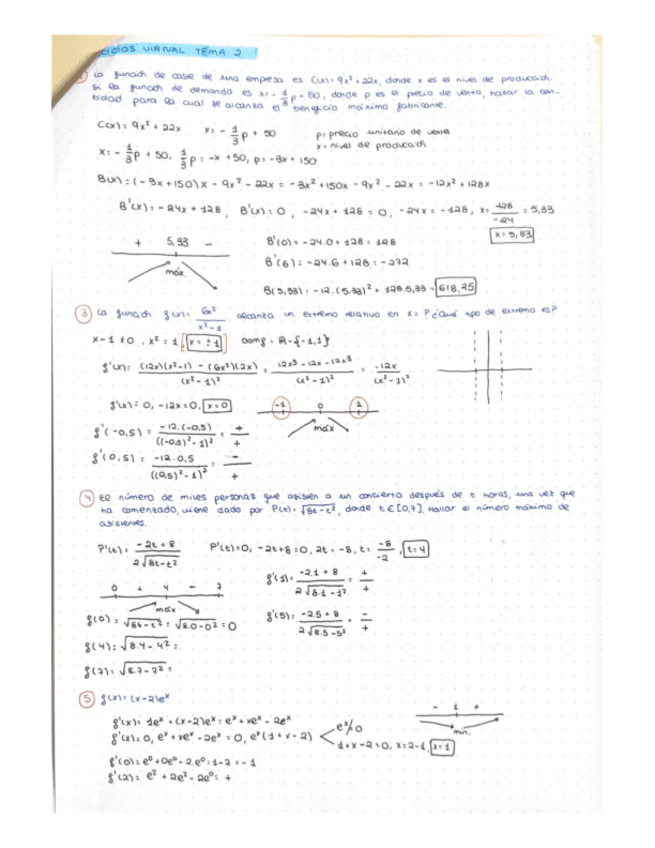 CICIOS VIRNAL TEMA 2
La función de coste de una empresa es C(x) = 9x² + 22x, donde x es el nivel de producción.
Si la función de demanda es x = - 1/3 p + 50, donde p es el precio de venta, hallar la can-
tidad para la cual se alcanza el beneficio máximo fabricante.
C(x) = 9x² + 22x x = - 1/3 p + 50 p = precio unitario de venta
x = - 1/3 p + 50, 1/3 p = -x + 50, p = -3x + 150 x = nivel de producción
B(x) = (-3x + 150)x - 9x² - 22x = -3x² + 150x - 9x² - 22x = -12x² + 128x
B'(x) = -24x + 128, B'(x) = 0, -24x + 128 = 0, -24x = -128, x = -128/-24 = 5,33
x = 5,33
+ 5,33 -
máx.
B'(0) = -24·0 + 128 = 128
B'(6) = -24·6 + 128 = -272
B(5,33) = -12·(5.33)² + 128·5,33 = 618,25
3 La función g(x) = 6x²/x²-1 alcanza un extremo relativo en x = ? ¿Qué tipo de extremo es?
x-1 ≠ 0, x² = 1, x = ±1 Domg = R - {-1, 1}
g'(x) = (12x)(x²-1) - (6x²)(2x)/(x²-1)² = 12x³ - 12x - 12x³/(x²-1)² = -12x/(x²-1)²
g'(x) = 0, -12x = 0, x = 0
-1 0 2
máx
g'(-0,5) = -12·(-0,5)/((-0,5)²-1)² = +/+
g'(0,5) = -12·0,5/((0,5)²-1)² = -/+
4 El número de miles personas que asisten a un concierto después de t horas, una vez que
ha comentado, viene dado por P(t) = √8t-t², donde t ∈ [0,7]. Hallar el número máximo de
asistentes.
P'(t) = -2t + 8/2√8t-t² P'(t) = 0, -2t+8 = 0, 2t = -8, t = -8/-2, t = 4
0 + 4 - 7
máx
g'(1) = -2·1 + 8/2√8·1-1² = +/+
g(0) = √8t-t² = √8·0-0² = 0
g'(5) = -2·5 + 8/2√8·5-5² = -/+
g(4) = √8·4-4² =
g(7) = √8·7-7² =
5 g(x) = (x-2)eˣ
- 1 +
mín.
g'(x) = 1eˣ + (x-2)eˣ = eˣ + xeˣ - 2eˣ
g'(x) = 0, eˣ + xeˣ - 2eˣ = 0, eˣ(1+x-2) eˣ ≠ 0
1+x-2 = 0, x = 2-1, x = 1
g'(0) = e⁰ + 0e⁰ - 2·e⁰ = 1-2 = -1
g'(2) = e² + 2e² - 2e⁰ = +